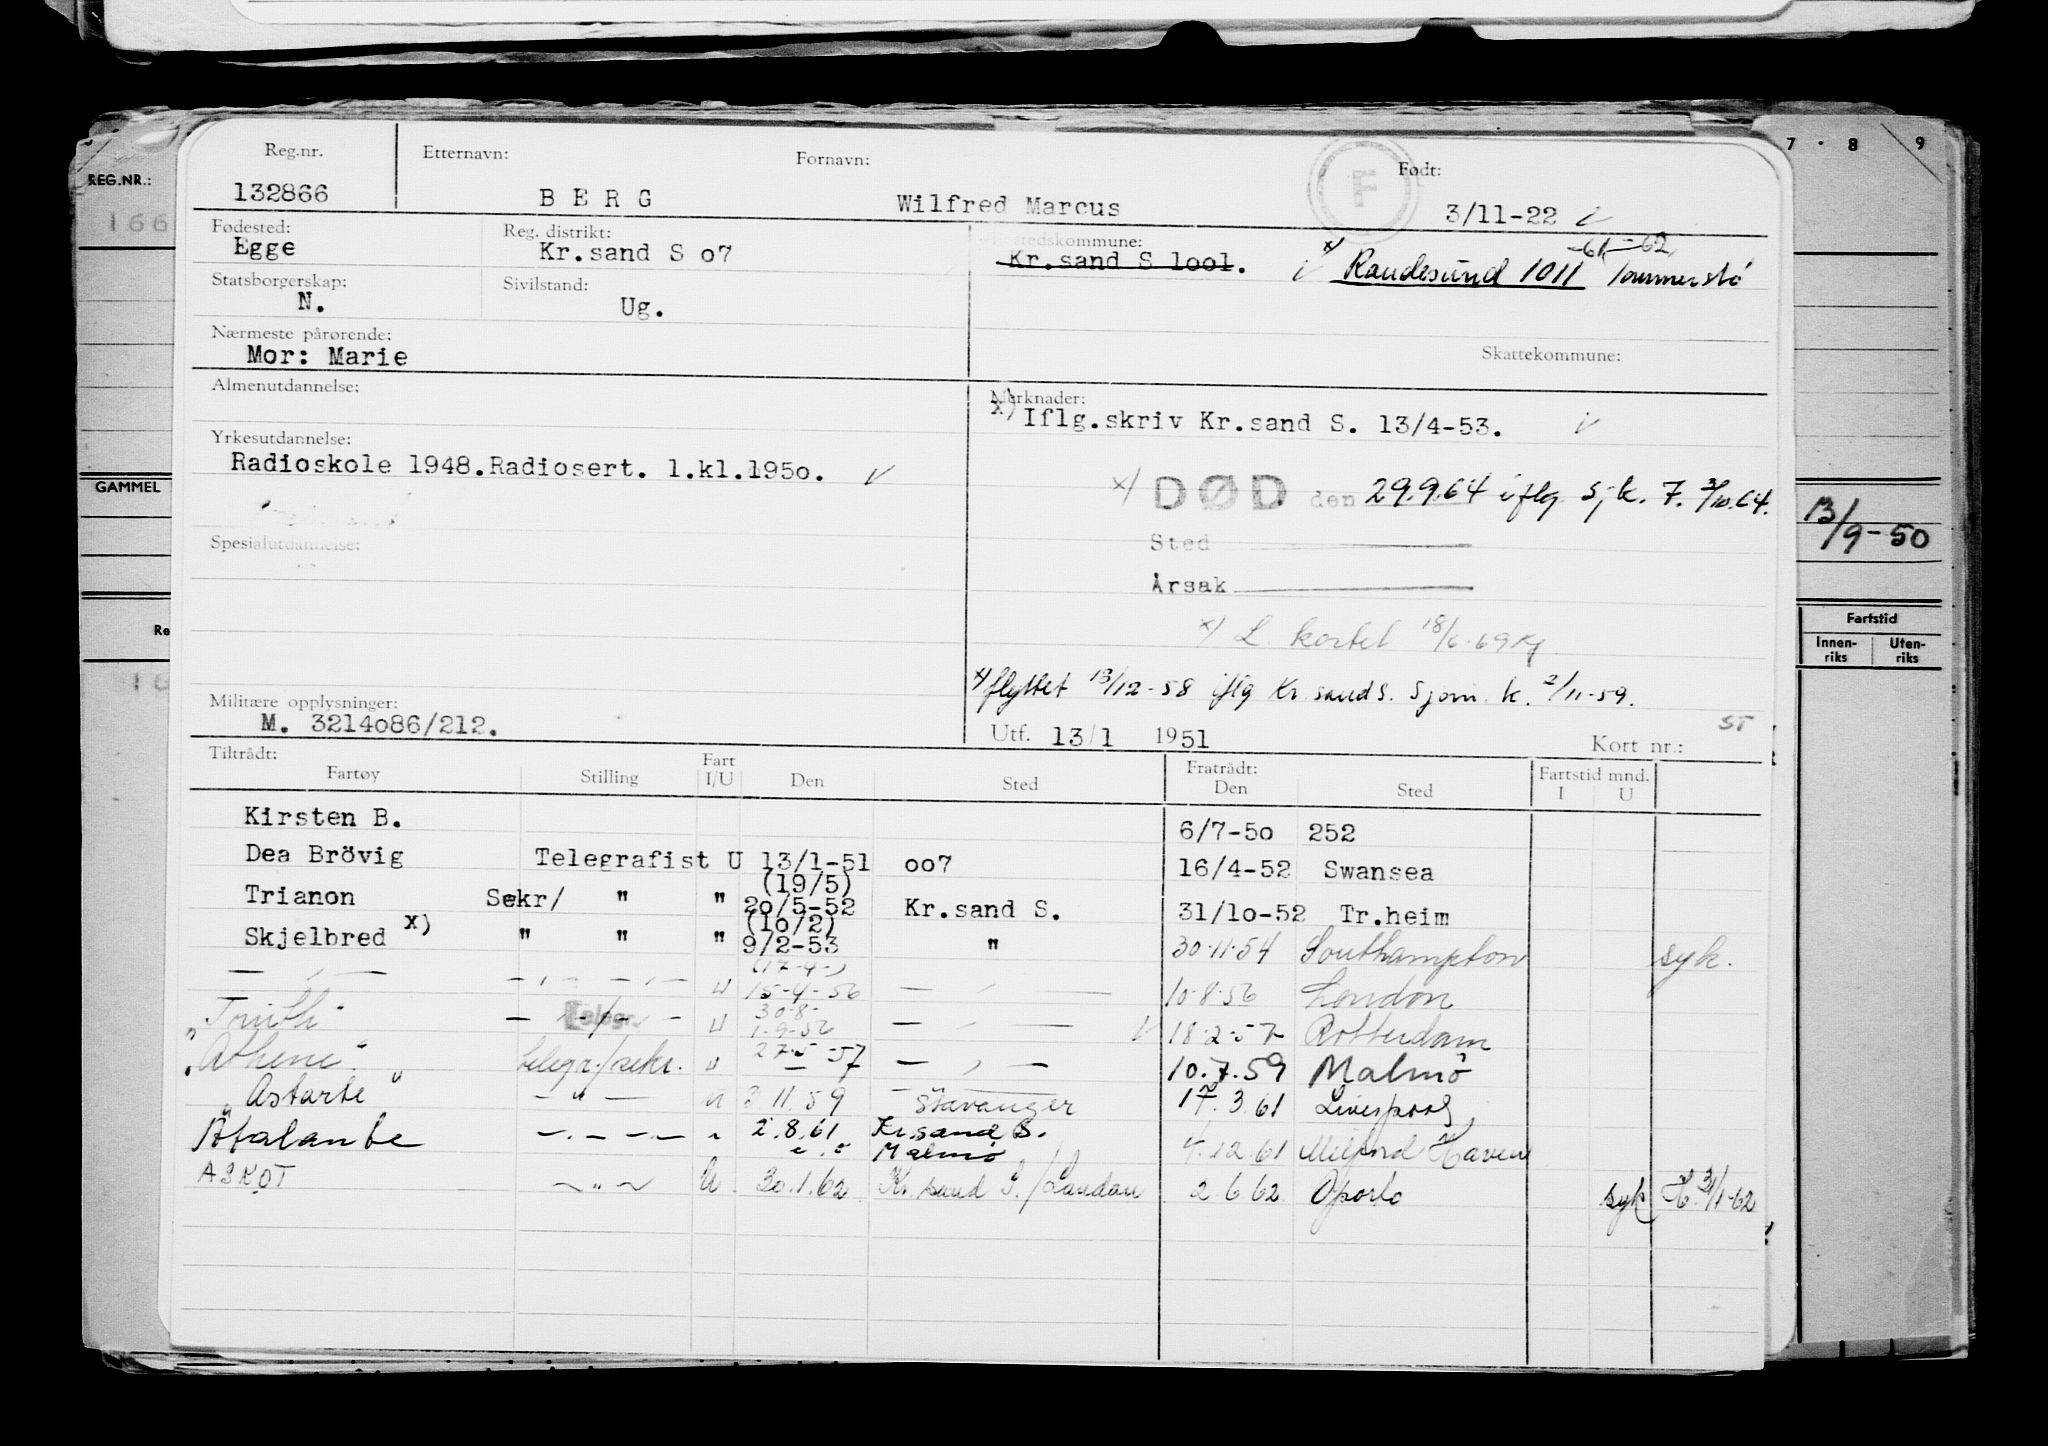 7 · 8 9
REG.NR.:
166
Reg.nr. Etternavn: Fornavn: Født:
132866 B E R G Wilfred Marcus F 3/11-22
Fødested: Reg. distrikt: stedskommune:
Egge Kr.sand S o7 Kr.sand S lool. x) Randesund 1011 -61 -62
Statsborgerskap: Sivilstand:
N. Ug.
Nærmeste pårørende:
Mor: Marie Skattekommune:
Almenutdannelse: Merknader:
x) Iflg.skriv Kr.sand S. 13/4-53.
Yrkesutdannelse:
Radioskole 1948.Radiosert. 1.kl.195o.
GAMMEL
x) DØD den 29.9.64 iflg. Sjk. 7. 3/10.64.
13/9-50
Spesialutdannelse: Sted
Årsak
Fartstid
Innen-riks Uten-riks
Re
x) L. kortet 18/6.69
16
x) flyttet 13/12-58 iflg Kr.sand S. Sjøm. k. 2/11-59.
Militære opplysninger:
M. 3214o86/212. Utf. 13/1 1951 Kort nr.: ST
Tiltrådt: Fart Fratrådt: Fartstid mnd.
Fartøy Stilling I/U Den Sted Den Sted I U
Kirsten B. 6/7-5o 252
Dea Brövig Telegrafist U 13/1-51 oo7 16/4-52 Swansea
(19/5)
Trianon Sekr/ " " 2o/5-52 Kr.sand S. 31/1o-52 Tr.heim
(1o/2)
Skjelbred x) " " " 9/2-53 " 30.11.54 Southampton syk.
(17-4-)
— " — — " — " — u 15-4-56 — " — 10.8.56 London
30-8-
— Telegr. — u 1.9.56 — " — 18.2.57 Rotterdam
"Athene" telegr./sekr. u 27.5-57 — " — 10.7.59 Malmö
"Astarte" — " — u 3 11.59 Stavanger 17.3.61 Liverpool
Atalante — . — . — " 2.8.61 Kr.sand S.
Malmö 4.12.61 Milford Haven
ASKOT — " — U. 30.1.62 Kr.sand S./London 2.6 62 Oporto syk